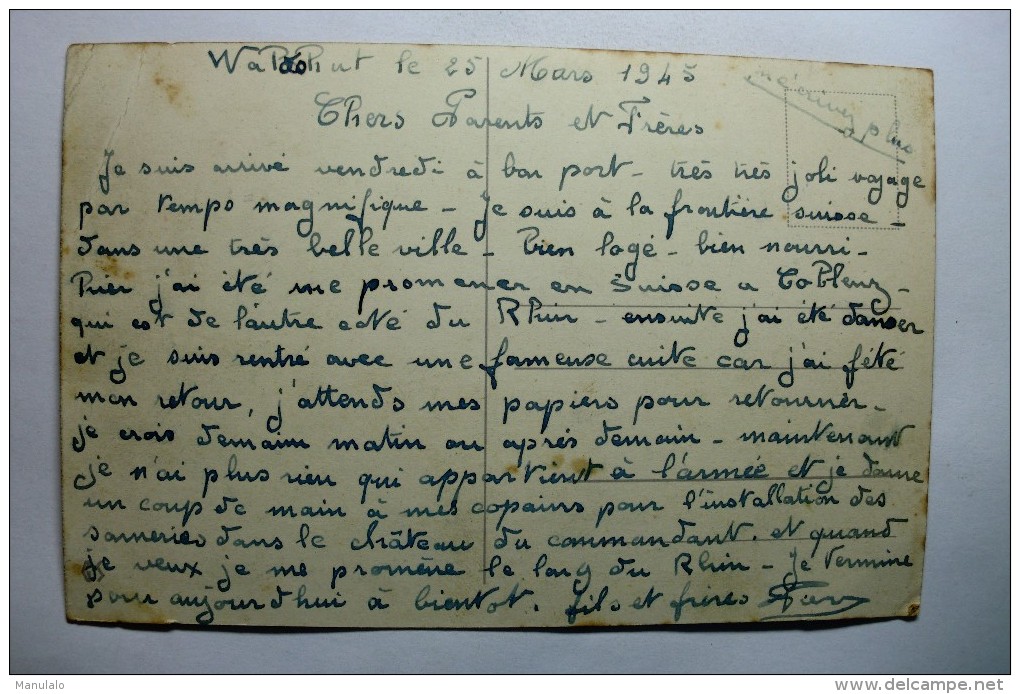 Waldshut le 25 Mars 1945
m'écrivez plus
Chers Parents et Frères
Je suis arrivé vendredi à bon port - très très joli voyage
par temps magnifique - Je suis à la frontière suisse -
dans une très belle ville - bien logé - bien nourri -
hier j'ai été me promener en Suisse a Coblenz -
qui est de l'autre coté du Rhin - ensuite j'ai été danser
et je suis rentré avec une fameuse cuite car j'ai fété
mon retour, j'attends mes papiers pour retourner -
je crois demain matin ou après demain - maintenant
je n'ai plus rien qui appartient à l'armée et je donne
un coup de main à mes copains pour l'installation des
sonneries dans le château du commandant. et quand
je veux je me promène le long du Rhin - Je termine
pour aujourd'hui à bientot. fils et frères
Manulalo
delcampe.net